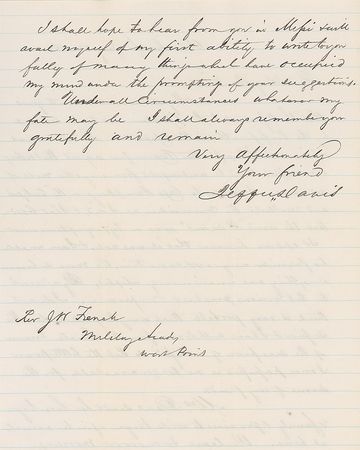 I shall hope to hear from you in Missi & will
avail myself of my first ability to write to you
fully of many things which have occupied
my mind under the promptings of your suggestions.
Under all Circumstances whatever my
fate may be I shall always remember you
gratefully and remain
Very Affectionately
Your friend
Jeffn. Davis
Rev J W French
Military Acady
West Point